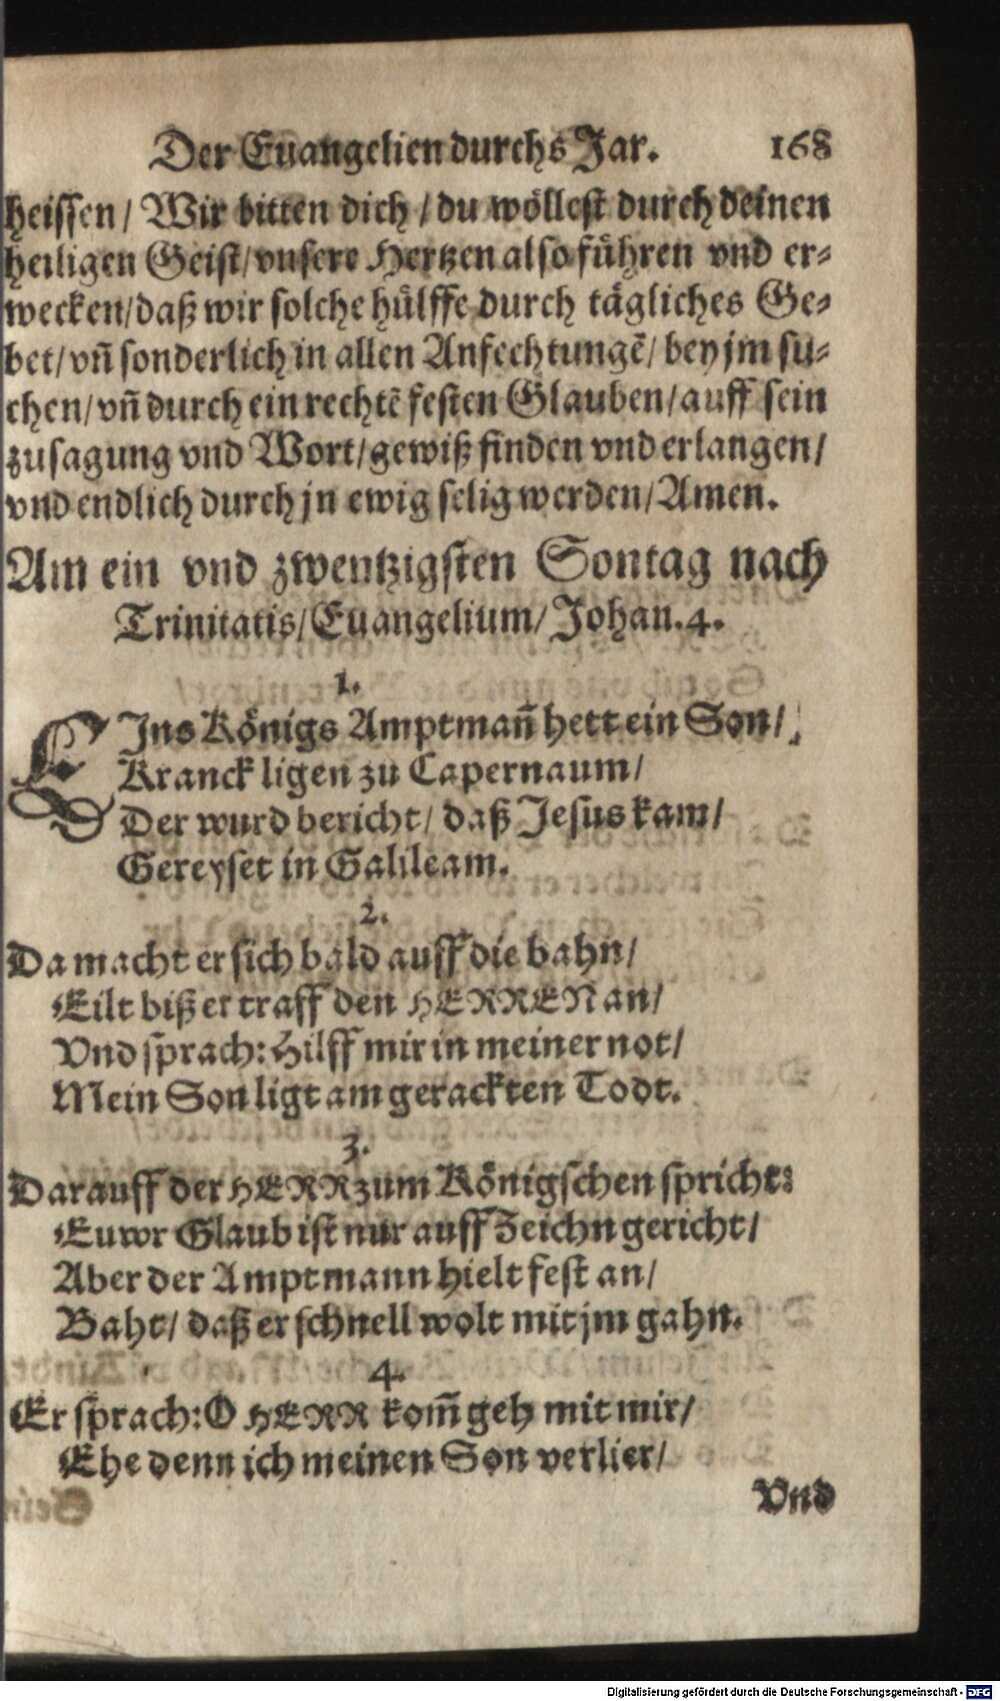 Der Euangelien durchs Jar. 168
heissen/ Wir bitten dich/ du wöllest durch deinen
heiligen Geist/ vnsere Hertzen also führen vnd er⸗
wecken/ daß wir solche hülffe durch tägliches Ge⸗
bet/ vñ sonderlich in allen Anfechtungẽ/ bey jm su⸗
chen/ vñ durch ein rechtẽ festen Glauben/ auff sein
zusagung vnd Wort/ gewiß finden vnd erlangen/
vnd endlich durch jn ewig selig werden/ Amen.
Am ein vnd zwentzigsten Sontag nach
Trinitatis/ Euangelium/ Johan. 4.
1.
EJns Königs Amptmañ hett ein Son/
Kranck ligen zu Capernaum/
Der wurd bericht/ daß Jesus kam/
Gereyset in Galileam.
2.
Da macht er sich bald auff die bahn/
Eilt biß er traff den HERREN an/
Vnd sprach: Hilff mir in meiner not/
Mein Son ligt am gerackten Todt.
3.
Darauff der HERR zum Königschen spricht:
Euwr Glaub ist nur auff Zeichn gericht/
Aber der Amptmann hielt fest an/
Baht/ daß er schnell wolt mit jm gahn.
4.
Er sprach: O HERR kom̃ geh mit mir/
Ehe denn ich meinen Son verlier/
Vnd
Digitalisierung gefördert durch die Deutsche Forschungsgemeinschaft - DFG